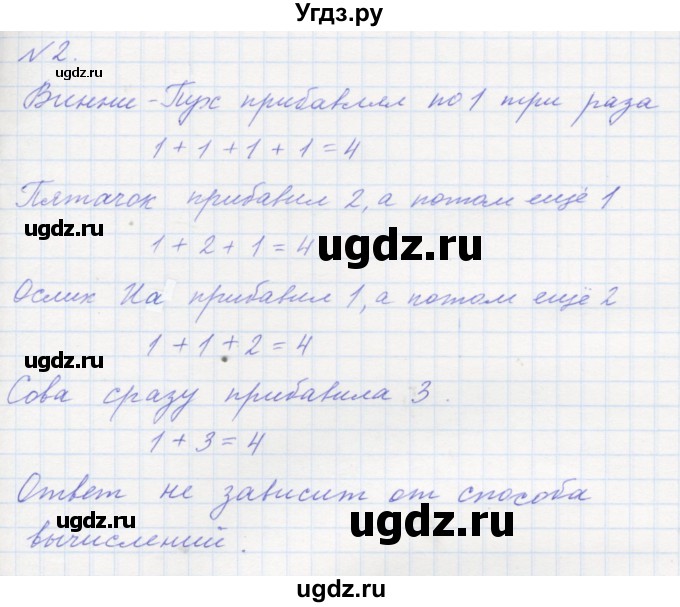 Угдз.ру
№2.
ugdz.ru
ugdz.ru
Винни-Пух прибавлял по 1 три раза
1 + 1 + 1 + 1 = 4
ugdz.ru
Пятачок прибавил 2, а потом ещё 1
ugdz.ru
1 + 2 + 1 = 4
ugdz.ru
Ослик Иа прибавил 1, а потом ещё 2
ugdz.ru
1 + 1 + 2 = 4
ugdz.ru
Сова сразу прибавила 3.
1 + 3 = 4
Ответ не зависит от способа
ugdz.ru
вычислений.
ugdz.ru
ugdz.ru